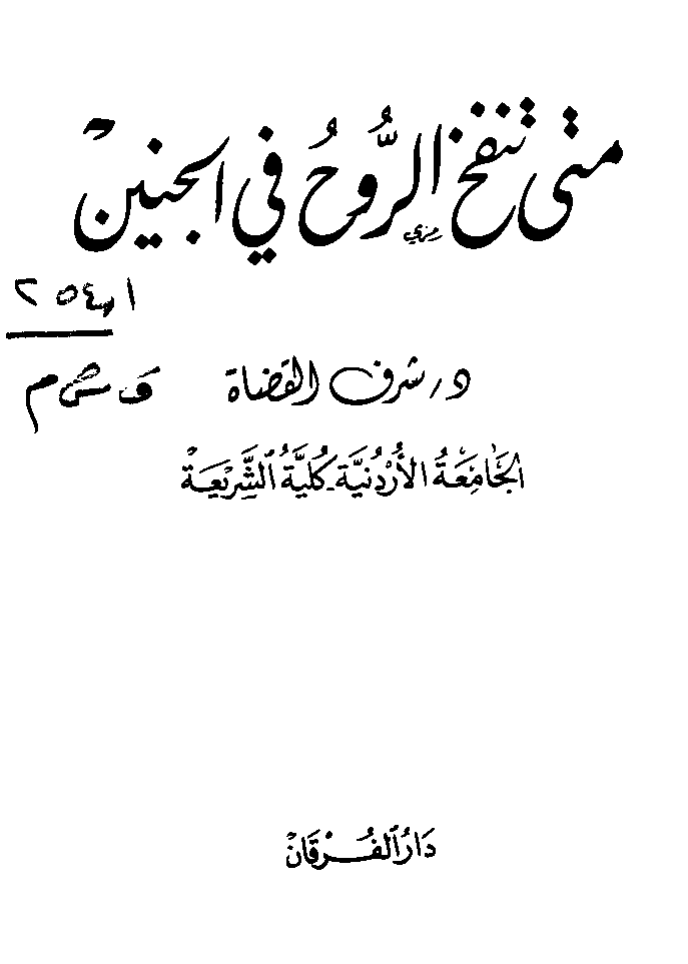 متى تنفخ الرُّوحُ في الجنين
د/ شرف القضاة
الجَامِعَةُ الأُرْدُنِيَّة - كُليَّةُ الشَّرِيْعَةْ
دَارُ الفُرْقَانْ